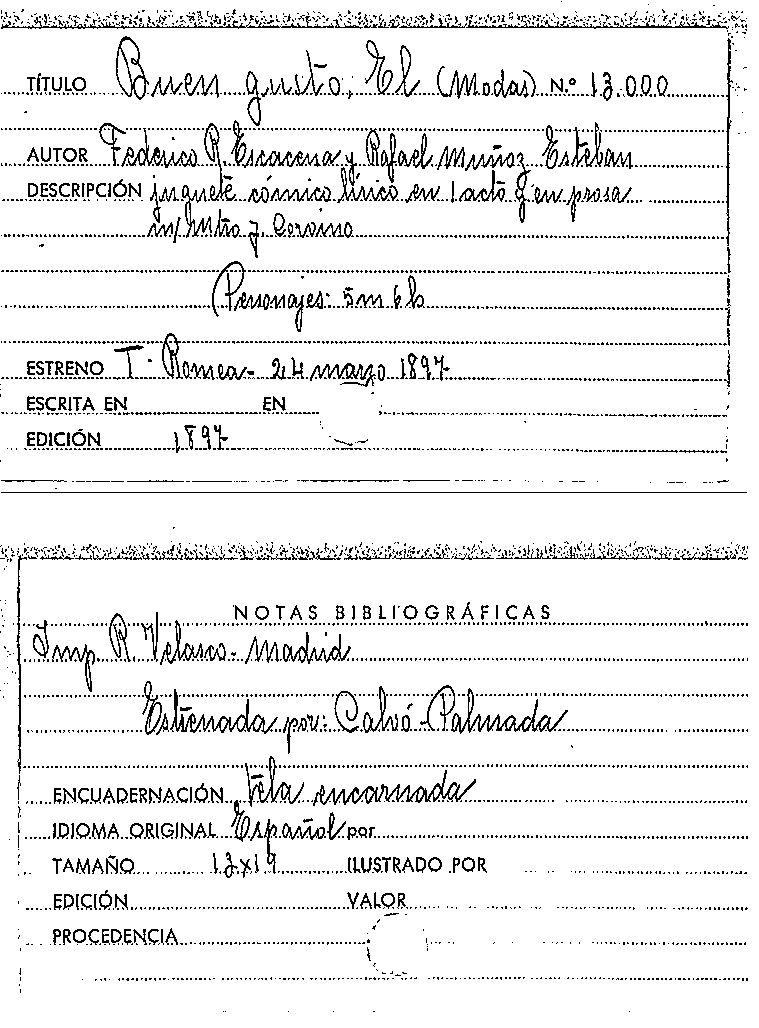 TÍTULO Buen gusto, El (Modas) N.º 13.000
AUTOR Federico R. Escacena y Rafael Muñoz Esteban
DESCRIPCIÓN juguete cómico lírico en 1 acto y en prosa
m/ Mtro J. Corvino
Personajes: 5m 6h
ESTRENO T. Romea - 24 marzo 1897
ESCRITA EN EN
EDICIÓN 1897
NOTAS BIBLIOGRÁFICAS
Imp. R. Velasco - Madrid
Estrenada por: Calvó - Palmada
ENCUADERNACIÓN Tela encarnada
IDIOMA ORIGINAL Español por
TAMAÑO 13x19 ILUSTRADO POR
EDICIÓN VALOR
PROCEDENCIA